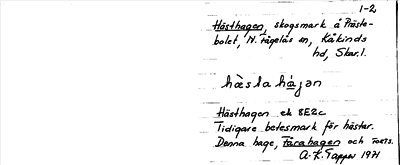 1-2
Hästhagen, skogsmark å Präste-
bolet, N. Fågelås sn, Kåkinds
hd, Skar.l.
hàsta há̱gən
Hästhagen ek 8E2c
Tidigare betesmark för hästar.
Denna hage, Fårahagen och forts.
A. K. Tapper 1971